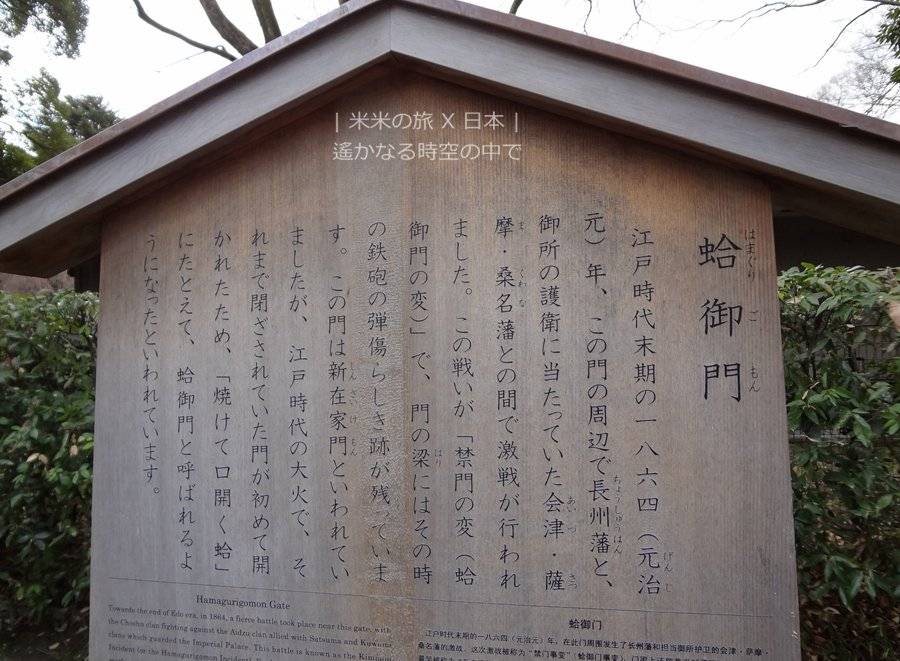 | 米米の旅 X 日本 |
遙かなる時空の中で
蛤御門
はまぐりごもん
江戸時代末期の一八六四(元治
げんじ
元)年、この門の周辺で長州藩と、
ちょうしゅうはん
御所の護衛に当たっていた会津・薩
あいづ さつ
摩・桑名藩との間で激戦が行われ
ま くわな
ました。この戦いが「禁門の変(蛤
御門の変)」で、門の梁にはその時
はり
の鉄砲の弾傷らしき跡が残っていま
す。この門は新在家門といわれてい
しんざいけもん
ましたが、江戸時代の大火で、そ
れまで閉ざされていた門が初めて開
かれたため、「焼けて口開く蛤」
にたとえて、蛤御門と呼ばれるよ
うになったといわれています。
Hamagurigomon Gate
Towards the end of Edo era, in 1864, a fierce battle took place near this gate, with
the Choshu clan fighting against the Aidzu clan allied with Satsuma and Kuwana
clans which guarded the Imperial Palace. This battle is known as the Kinmon
Incident (or the Hamagurigomon Incident).
蛤御门
江户时代末期的一八六四(元治元)年，在此门周围发生了长州藩和担当御所护卫的会津・萨摩・
桑名藩的激战。这次激战被称为“禁门事变”(蛤御门事变)，